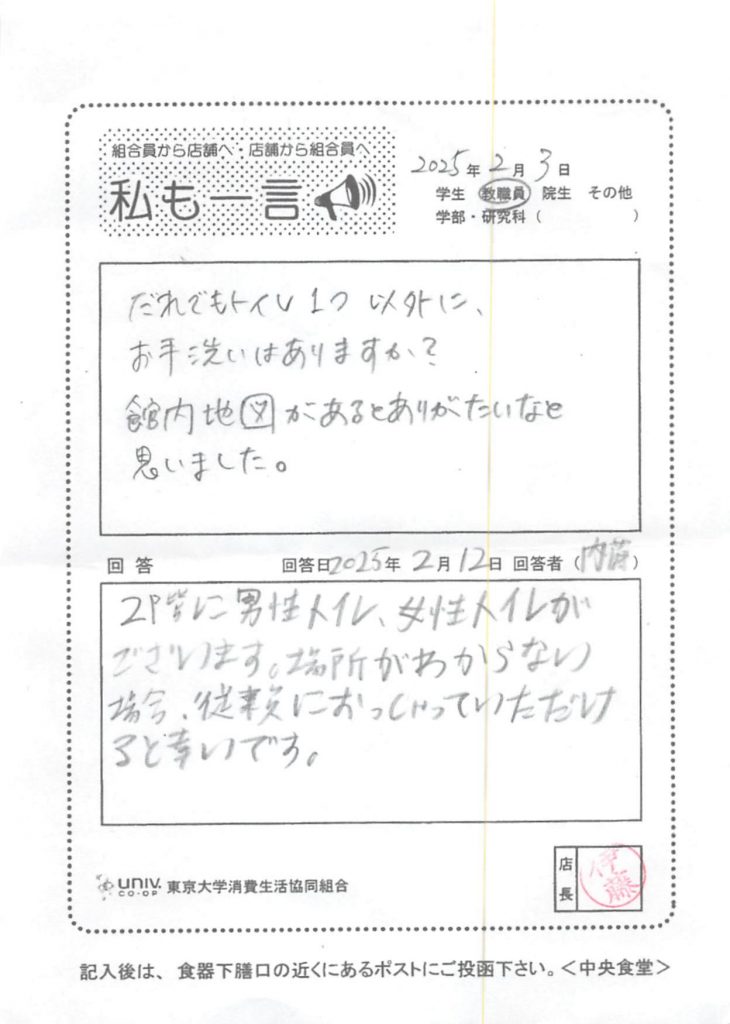 組合員から店舗へ・店舗から組合員へ
私も一言
2025年2月3日
学生 教職員 院生 その他
学部・研究科( )
だれでもトイレ1つ以外に、
お手洗いはありますか?
館内地図があるとありがたいなと
思いました。
回答 回答日2025年2月12日 回答者(内藤)
2F皆に男性トイレ、女性トイレが
ございます。場所がわからない
場合、従業員におっしゃっていただけ
ると幸いです。
UNIV. CO-OP 東京大学消費生活協同組合
店長 伊藤
記入後は、食器下膳口の近くにあるポストにご投函下さい。<中央食堂>